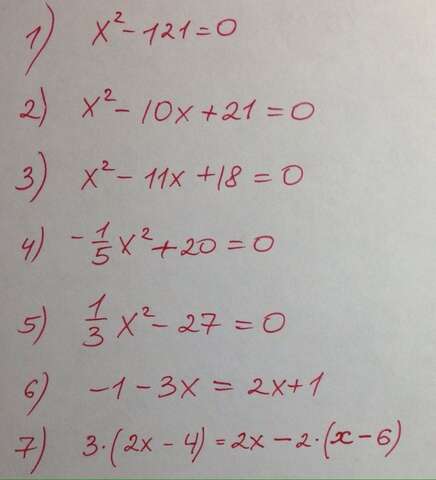 1) x² - 121 = 0
2) x² - 10x + 21 = 0
3) x² - 11x + 18 = 0
4) -1/5 x² + 20 = 0
5) 1/3 x² - 27 = 0
6) -1 - 3x = 2x + 1
7) 3·(2x - 4) = 2x - 2·(x - 6)